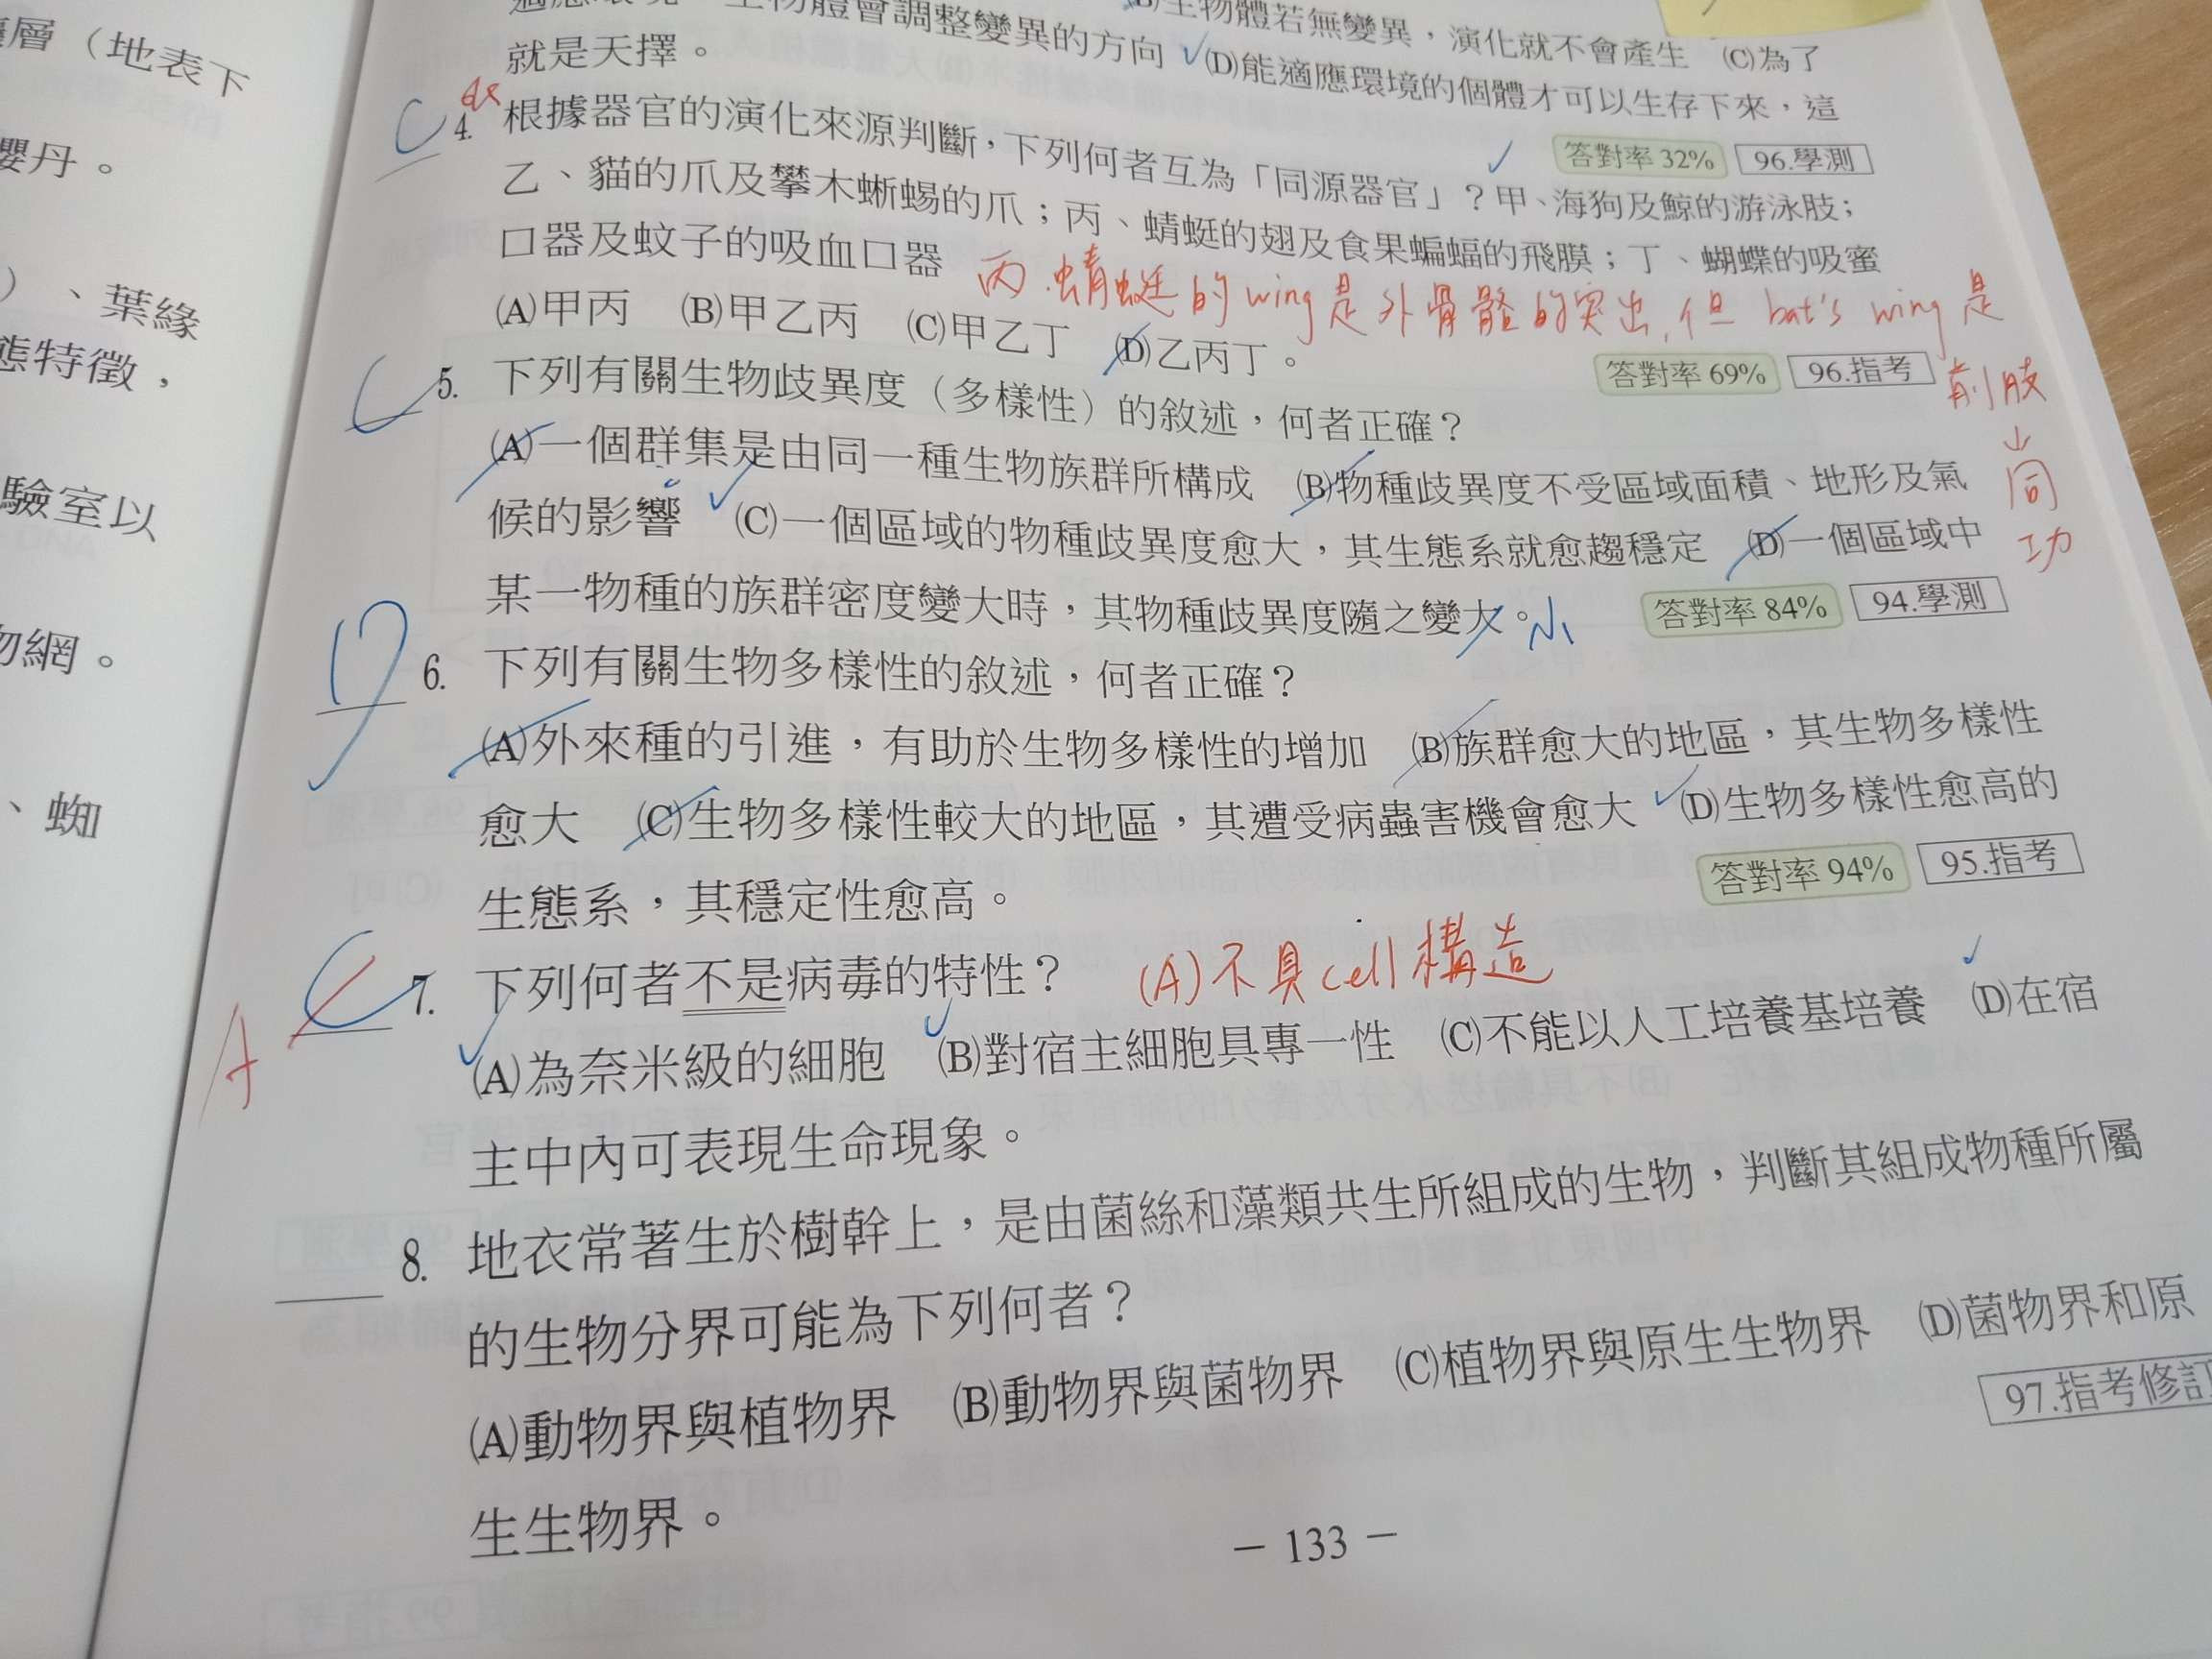 層（地表下
丹。
）、葉緣
態特徵，
驗室以
物網。
、蜘
適應環境，生物體會調整變異的方向 (D)能適應環境的個體才可以生存下來，這
(B)生物體若無變異，演化就不會產生 (C)為了
就是天擇。
答對率 32% 96.學測
C 4. 根據器官的演化來源判斷，下列何者互為「同源器官」？甲、海狗及鯨的游泳肢；
乙、貓的爪及攀木蜥蜴的爪；丙、蜻蜓的翅及食果蝙蝠的飛膜；丁、蝴蝶的吸蜜
口器及蚊子的吸血口器
丙.蜻蜓的wing是外骨骼的突出,但 bat's wing是
前肢
同
功
(A)甲丙 (B)甲乙丙 (C)甲乙丁 (D)乙丙丁。
答對率 69% 96.指考
C 5. 下列有關生物歧異度（多樣性）的敘述，何者正確？
(A)一個群集是由同一種生物族群所構成 (B)物種歧異度不受區域面積、地形及氣
候的影響 (C)一個區域的物種歧異度愈大，其生態系就愈趨穩定 (D)一個區域中
某一物種的族群密度變大時，其物種歧異度隨之變大。小
答對率 84% 94.學測
D 6. 下列有關生物多樣性的敘述，何者正確？
(A)外來種的引進，有助於生物多樣性的增加 (B)族群愈大的地區，其生物多樣性
愈大 (C)生物多樣性較大的地區，其遭受病蟲害機會愈大 (D)生物多樣性愈高的
生態系，其穩定性愈高。
答對率 94% 95.指考
A C 7. 下列何者不是病毒的特性？ (A)不具cell構造
(A)為奈米級的細胞 (B)對宿主細胞具專一性 (C)不能以人工培養基培養 (D)在宿
主中內可表現生命現象。
8. 地衣常著生於樹幹上，是由菌絲和藻類共生所組成的生物，判斷其組成物種所屬
的生物分界可能為下列何者？
(A)動物界與植物界 (B)動物界與菌物界 (C)植物界與原生生物界 (D)菌物界和原
生生物界。
97.指考修訂
－ 133 －